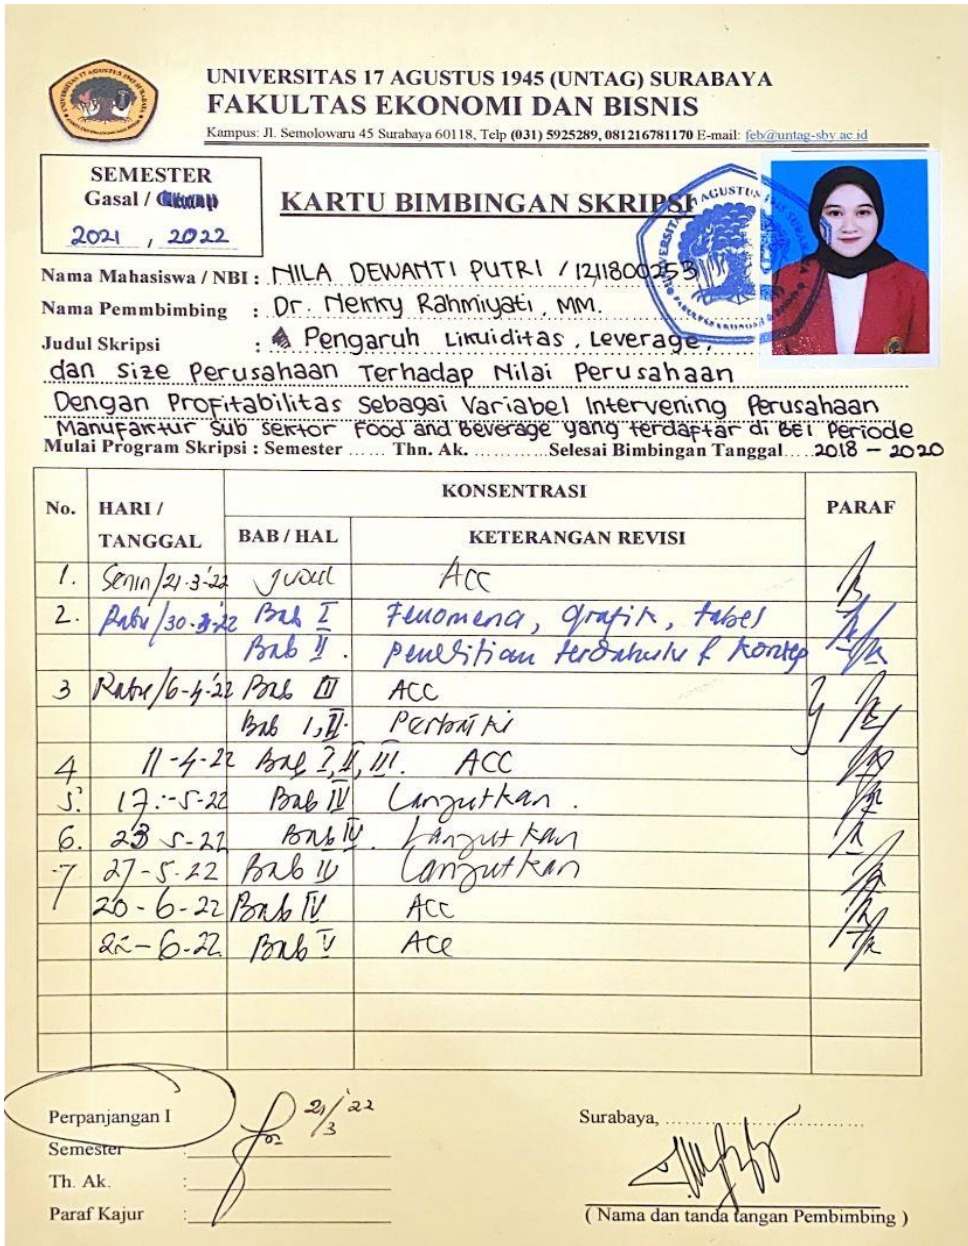 UNIVERSITAS 17 AGUSTUS 1945 (UNTAG) SURABAYA
FAKULTAS EKONOMI DAN BISNIS
Kampus: Jl. Semolowaru 45 Surabaya 60118, Telp (031) 5925289, 081216781170 E-mail: feb@untag-sby.ac.id
SEMESTER
Gasal /
2021 , 2022
KARTU BIMBINGAN SKRIPSI
Nama Mahasiswa / NBI : NILA DEWANTI PUTRI / 1211800253
Nama Pemmbimbing : Dr. Nekky Rahmiyati, MM.
Judul Skripsi : Pengaruh Likuiditas, Leverage,
dan Size Perusahaan Terhadap Nilai Perusahaan
Dengan Profitabilitas Sebagai Variabel Intervening Perusahaan
Manufaktur Sub Sektor Food and Beverage yang terdaftar di BEI Periode
Mulai Program Skripsi : Semester ...... Thn. Ak. ............ Selesai Bimbingan Tanggal..... 2018 - 2020
No. HARI / TANGGAL KONSENTRASI PARAF
BAB / HAL KETERANGAN REVISI
1. Senin/21-3-'22 Judul ACC
2. Rabu/30-3-'22 Bab I Fenomena, grafik, tabel
Bab II. Penelitian terdahulu & konsep
3 Rabu/6-4-'22 Bab III ACC
Bab I, II. Perbaiki
4 11-4-22 Bab I, II, III. ACC
5. 17-5-22 Bab IV Lanjutkan.
6. 23 5-22 Bab IV. Lanjutkan
7 27-5-22 Bab IV Lanjutkan
20-6-22 Bab IV ACC
22-6-22 Bab V ACC
Perpanjangan I
21/3 '22
Surabaya, ..............................
Semester :
Th. Ak. :
Paraf Kajur :
( Nama dan tanda tangan Pembimbing )